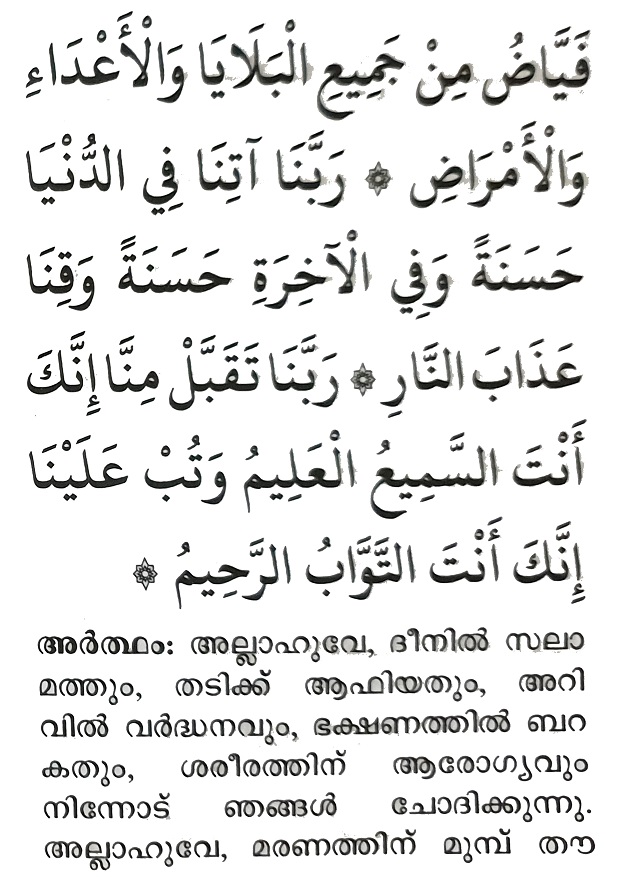 فَيَّاضُ مِنْ جَمِيعِ الْبَلَايَا وَالْأَعْدَاءِ
وَالْأَمْرَاضِ ۞ رَبَّنَا آتِنَا فِي الدُّنْيَا
حَسَنَةً وَفِي الْآخِرَةِ حَسَنَةً وَقِنَا
عَذَابَ النَّارِ ۞ رَبَّنَا تَقَبَّلْ مِنَّا إِنَّكَ
أَنْتَ السَّمِيعُ الْعَلِيمُ وَتُبْ عَلَيْنَا
إِنَّكَ أَنْتَ التَّوَّابُ الرَّحِيمُ ۞
അർത്ഥം: അല്ലാഹുവേ, ദീനിൽ സലാ
മത്തും, തടിക്ക് ആഫിയതും, അറി
വിൽ വർദ്ധനവും, ഭക്ഷണത്തിൽ ബറ
കതും, ശരീരത്തിന് ആരോഗ്യവും
നിന്നോട് ഞങ്ങൾ ചോദിക്കുന്നു.
അല്ലാഹുവേ, മരണത്തിന് മുമ്പ് തൗ